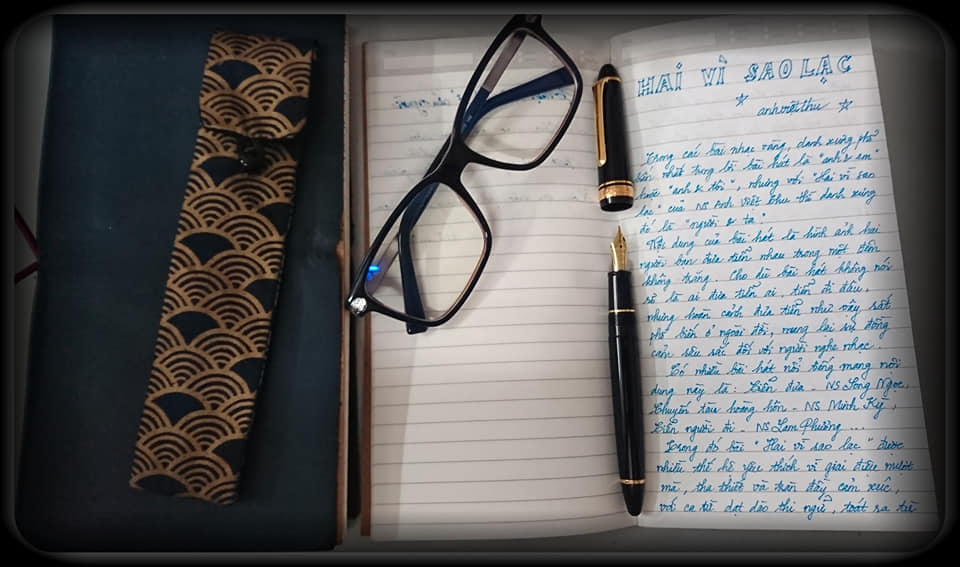 HAI VÌ SAO LẠC
anhviệtthu
Trong các bài nhạc vàng, danh xưng phổ
biến nhất trong lời bài hát là "anh & em"
hoặc "anh & tôi", nhưng với "Hai vì sao
lạc" của NS Anh Việt Thu thì danh xưng
đó là "người & ta".
Nội dung của bài hát là hình ảnh hai
người bạn đưa tiễn nhau trong một đêm
không trăng. Cho dù bài hát không nói
rõ là ai đưa tiễn ai, tiễn đi đâu,
nhưng hoàn cảnh đưa tiễn như vậy rất
phổ biến ở ngoài đời, mang lại sự đồng
cảm sâu sắc đối với người nghe nhạc.
Có nhiều bài hát nổi tiếng mang nội
dung này là: Tiễn đưa - NS Song Ngọc,
Chuyến tàu hoàng hôn - NS Minh Kỳ,
Tiễn người đi - NS Lam Phương ...
Trong đó bài "Hai vì sao lạc" được
nhiều thế hệ yêu thích vì giai điệu mượt
mà, tha thiết và tràn đầy cảm xúc,
với ca từ dạt dào thi ngữ, toát ra từ